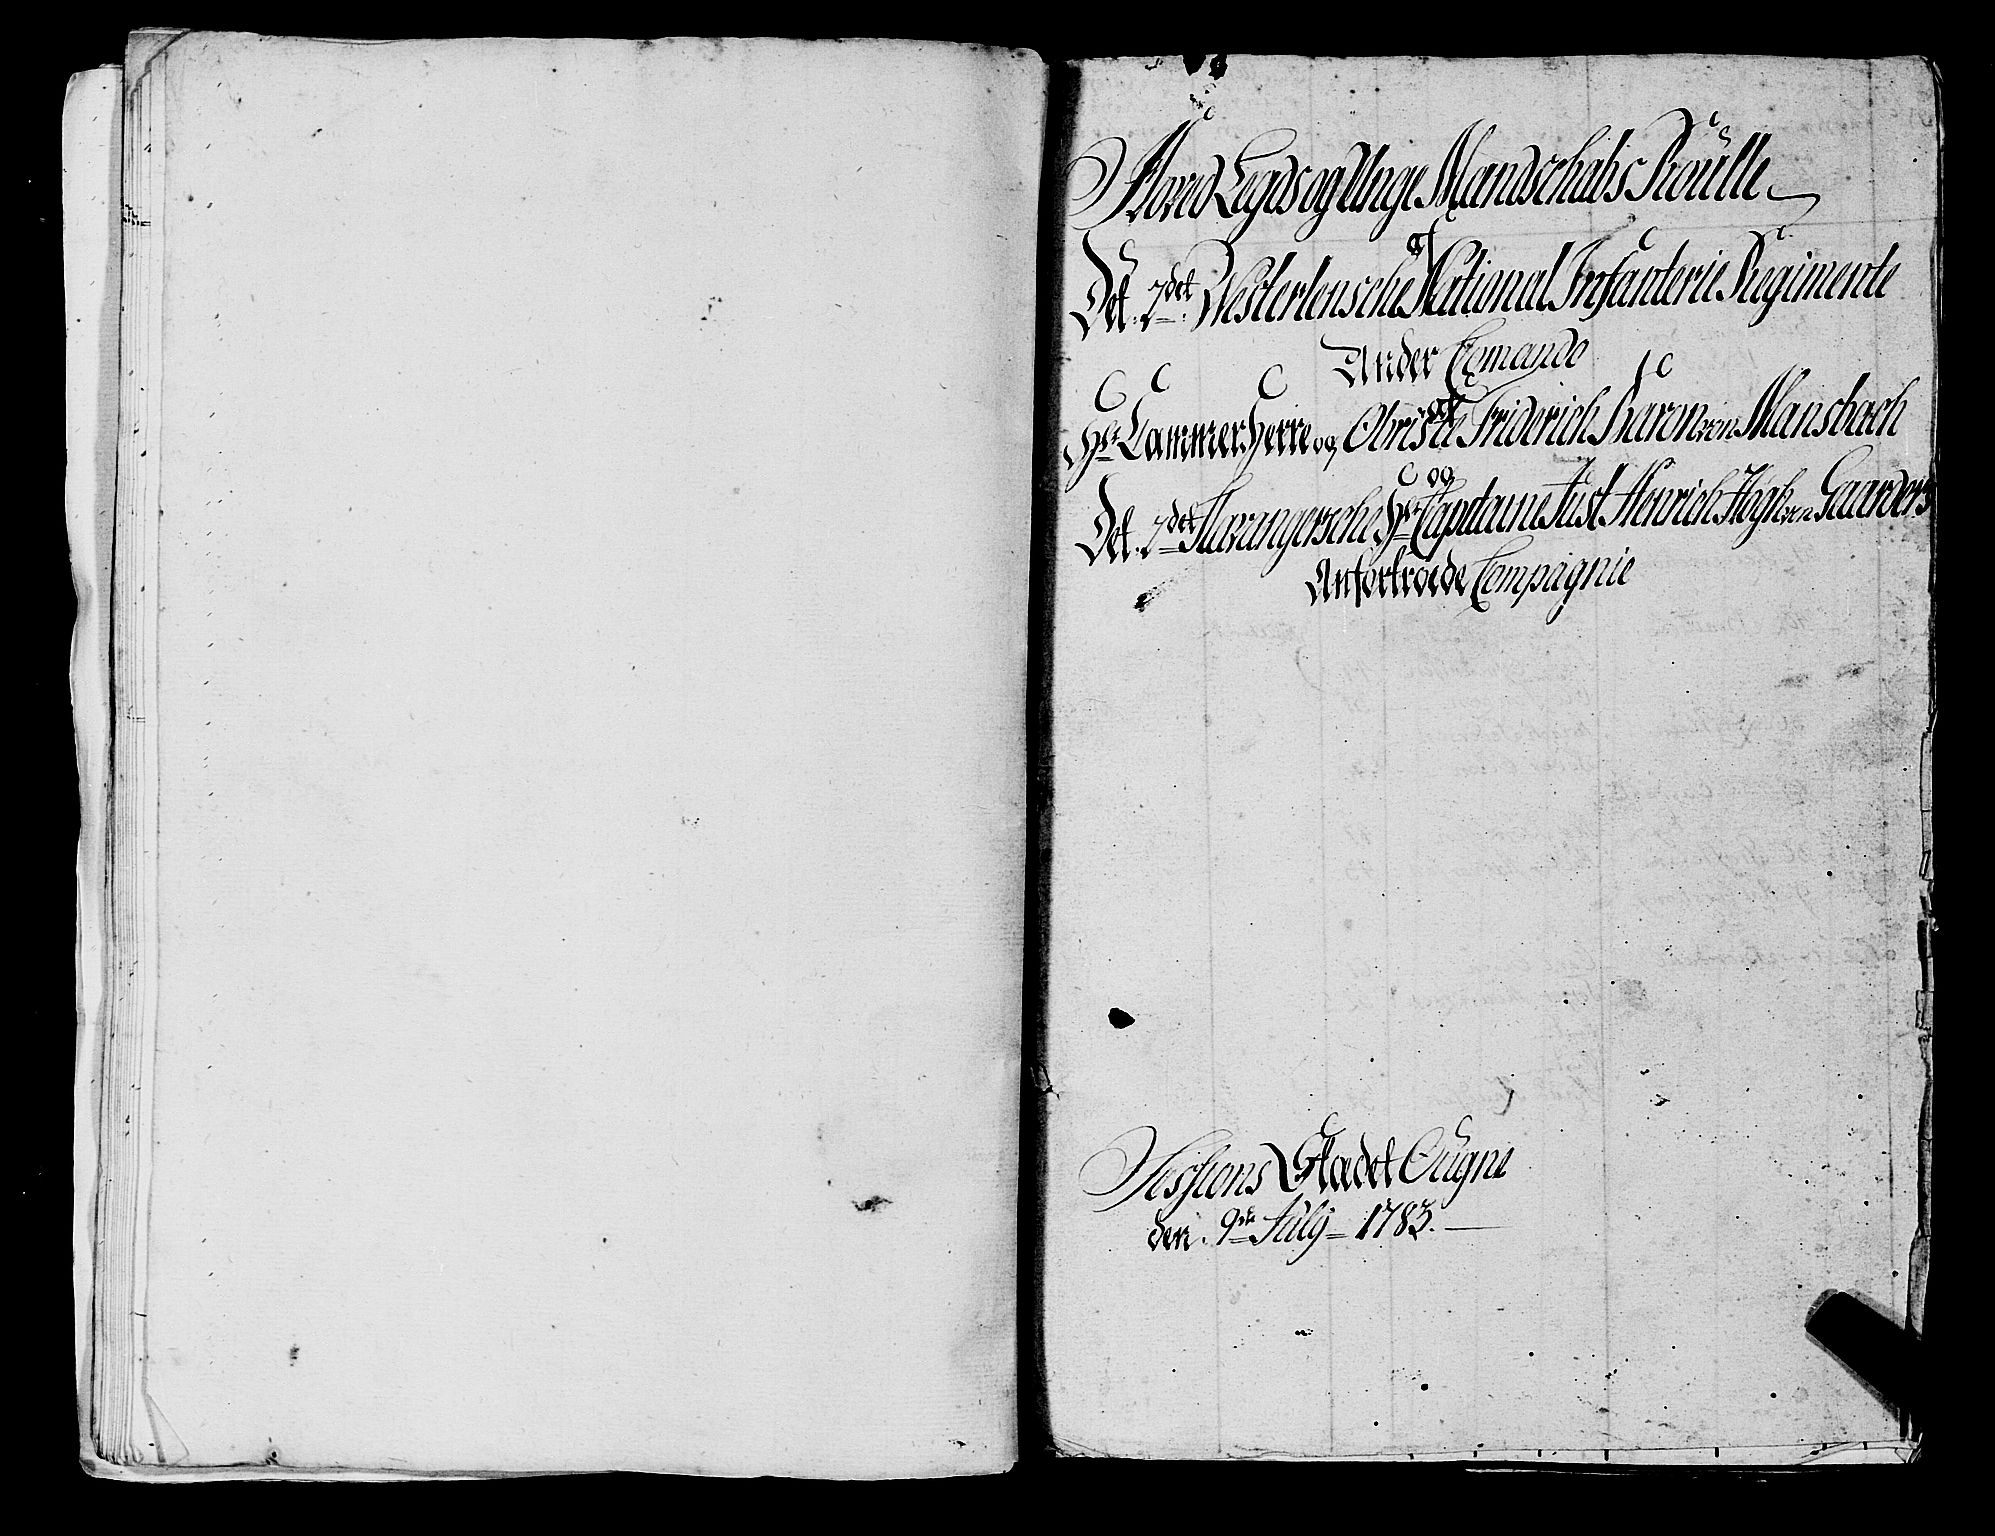 Hoved Legds og Unge Mandschabs Roulle
af
Det 2det Westerlensche National Infanterie Regimente
Under Comando
af
Hr Cammer Herre og Obriste Friderich Baron von Mansbach
og
Det 2det Stavangersche Hr Capitaine Just Henrich Høgh von Gaarders
Anfortroede Compagnie
Sessions Stædet Ougne
den 9de July 1783.